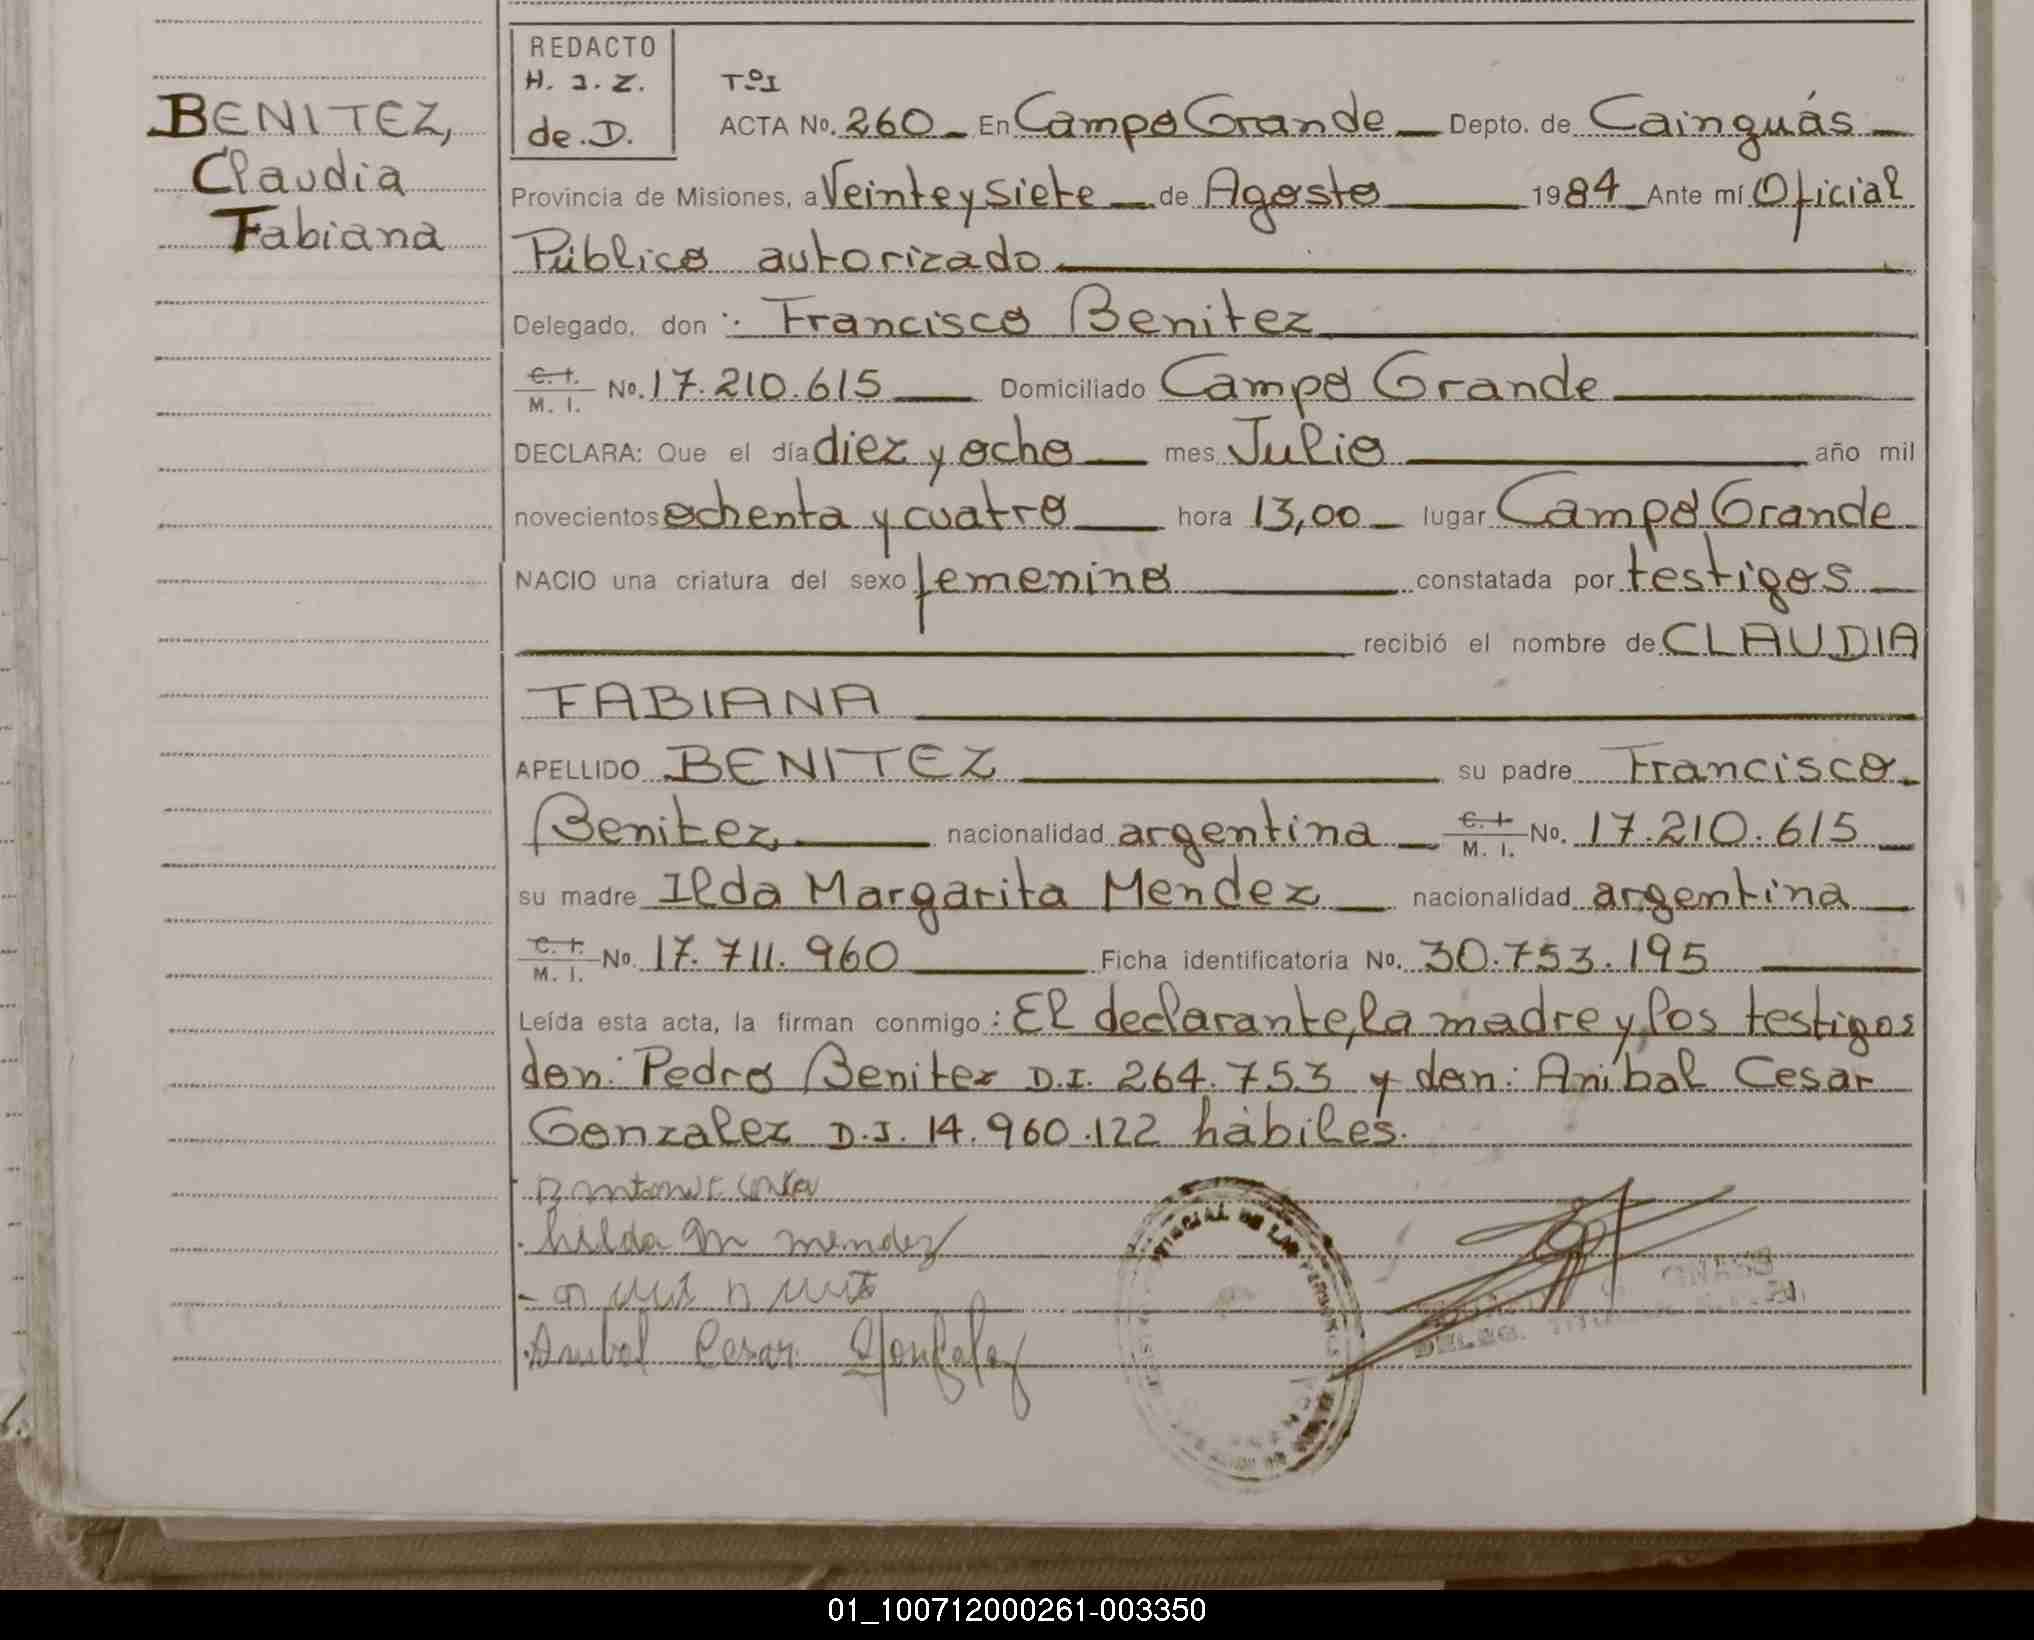 BENITEZ,
Claudia
Fabiana
REDACTO
H. J. Z.
de D.
Tº I
ACTA No. 260 En Campo Grande Depto. de Cainguás
Provincia de Misiones, a Veinte y Siete de Agosto 1984 Ante mí Oficial
Público autorizado
Delegado, don : Francisco Benitez
C. I. M. I. No. 17.210.615 Domiciliado Campo Grande
DECLARA: Que el día diez y ocho mes Julio año mil
novecientos ochenta y cuatro hora 13,00 lugar Campo Grande
NACIO una criatura del sexo femenino constatada por testigos
recibió el nombre de CLAUDIA
FABIANA
APELLIDO BENITEZ su padre Francisco
Benitez nacionalidad argentina C. I. M. I. No. 17.210.615
su madre Ilda Margarita Mendez nacionalidad argentina
C. I. M. I. No. 17.711.960 Ficha identificatoria No. 30.753.195
Leída esta acta, la firman conmigo : El declarante, la madre y los testigos
don: Pedro Benitez D.I. 264.753 y don: Anibal Cesar
Gonzalez D.I. 14.960.122 hábiles.
hilda m mendez
Anibal Cesar Gonzalez
DELEG. TITULAR
01_100712000261-003350